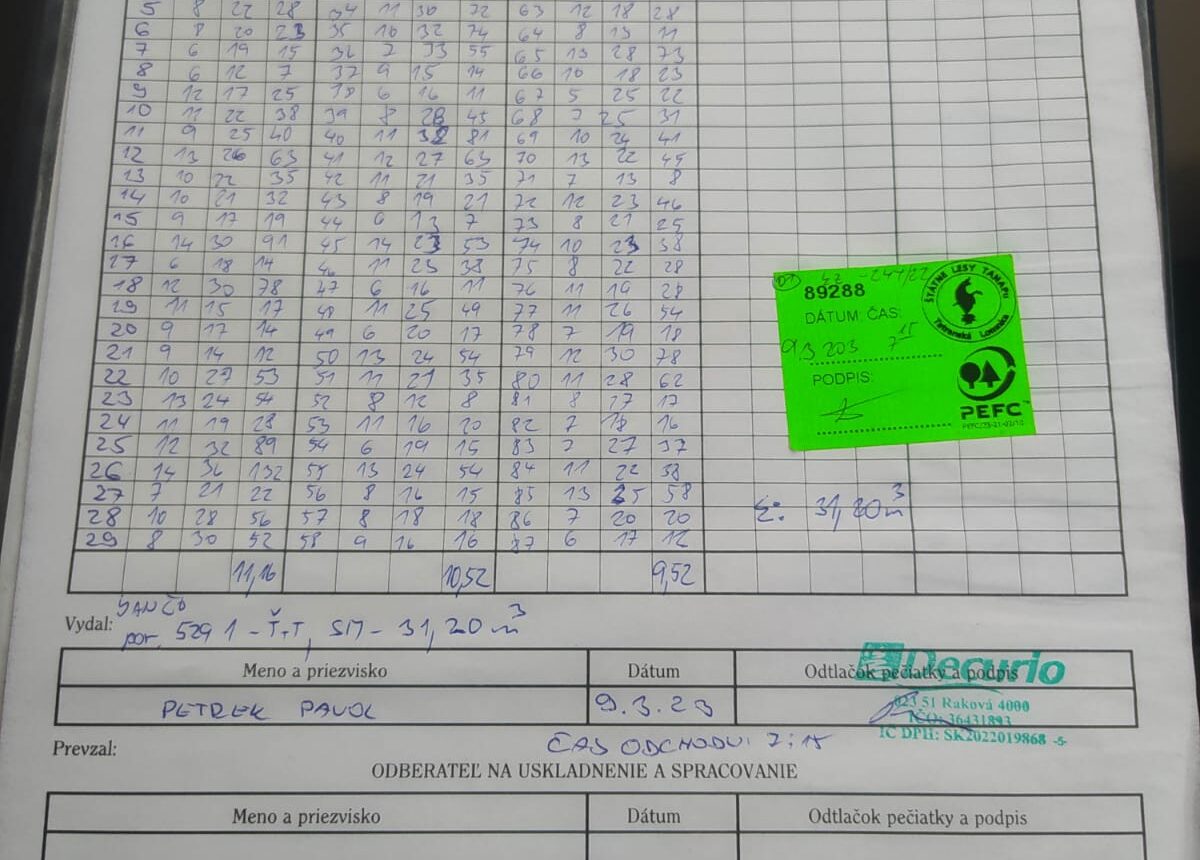 5 8 22 28 34 11 30 72 63 12 18 28
6 8 20 23 35 10 32 74 64 8 13 11
7 6 19 15 36 7 33 55 65 13 28 73
8 6 12 7 37 9 15 14 66 10 18 23
9 12 17 25 38 6 16 11 67 5 25 22
10 11 22 38 39 8 28 45 68 7 25 31
11 9 25 40 40 11 38 81 69 10 24 41
12 13 26 63 41 12 27 63 70 13 22 45
13 10 22 35 42 11 21 35 71 7 13 8
14 10 21 32 43 8 19 21 72 12 23 46
15 9 17 19 44 6 13 7 73 8 21 25
16 14 30 91 45 14 23 53 74 10 23 38
17 6 18 14 46 11 23 38 75 8 22 28
18 12 30 78 47 6 16 11 76 11 19 28
19 11 15 17 48 11 25 49 77 11 26 54
20 9 17 14 49 6 20 17 78 7 19 18
21 9 14 12 50 13 24 54 79 12 30 78
22 10 27 53 51 11 21 35 80 11 28 62
23 13 24 54 52 8 12 8 81 8 17 17
24 11 19 28 53 11 16 20 82 7 18 16
25 12 32 89 54 6 19 15 83 7 27 37
26 14 36 132 55 13 24 54 84 11 22 38
27 7 21 22 56 8 16 15 85 13 25 58
28 10 28 56 57 8 18 18 86 7 20 20
29 8 30 52 58 9 16 16 87 6 17 12
11,16 10,52 9,52
89288
ŠTÁTNE LESY TANAPU
Tatranská Lomnica
DÁTUM: ČAS:
9.3 203 7 15
PODPIS:
PEFC™
Σ: 31,20 m³
JANČO
Vydal: por. 529 1 - Ť.T, SM - 31,20 m³
Meno a priezvisko Dátum Odtlačok pečiatky a podpis
PETREK PAVOL 9.3.23
Decurio
023 51 Raková 4000
IČO: 36431893
IČ DPH: SK2022019868 -5-
Prevzal: ČAS ODCHODU: 7:15
ODBERATEĽ NA USKLADNENIE A SPRACOVANIE
Meno a priezvisko Dátum Odtlačok pečiatky a podpis